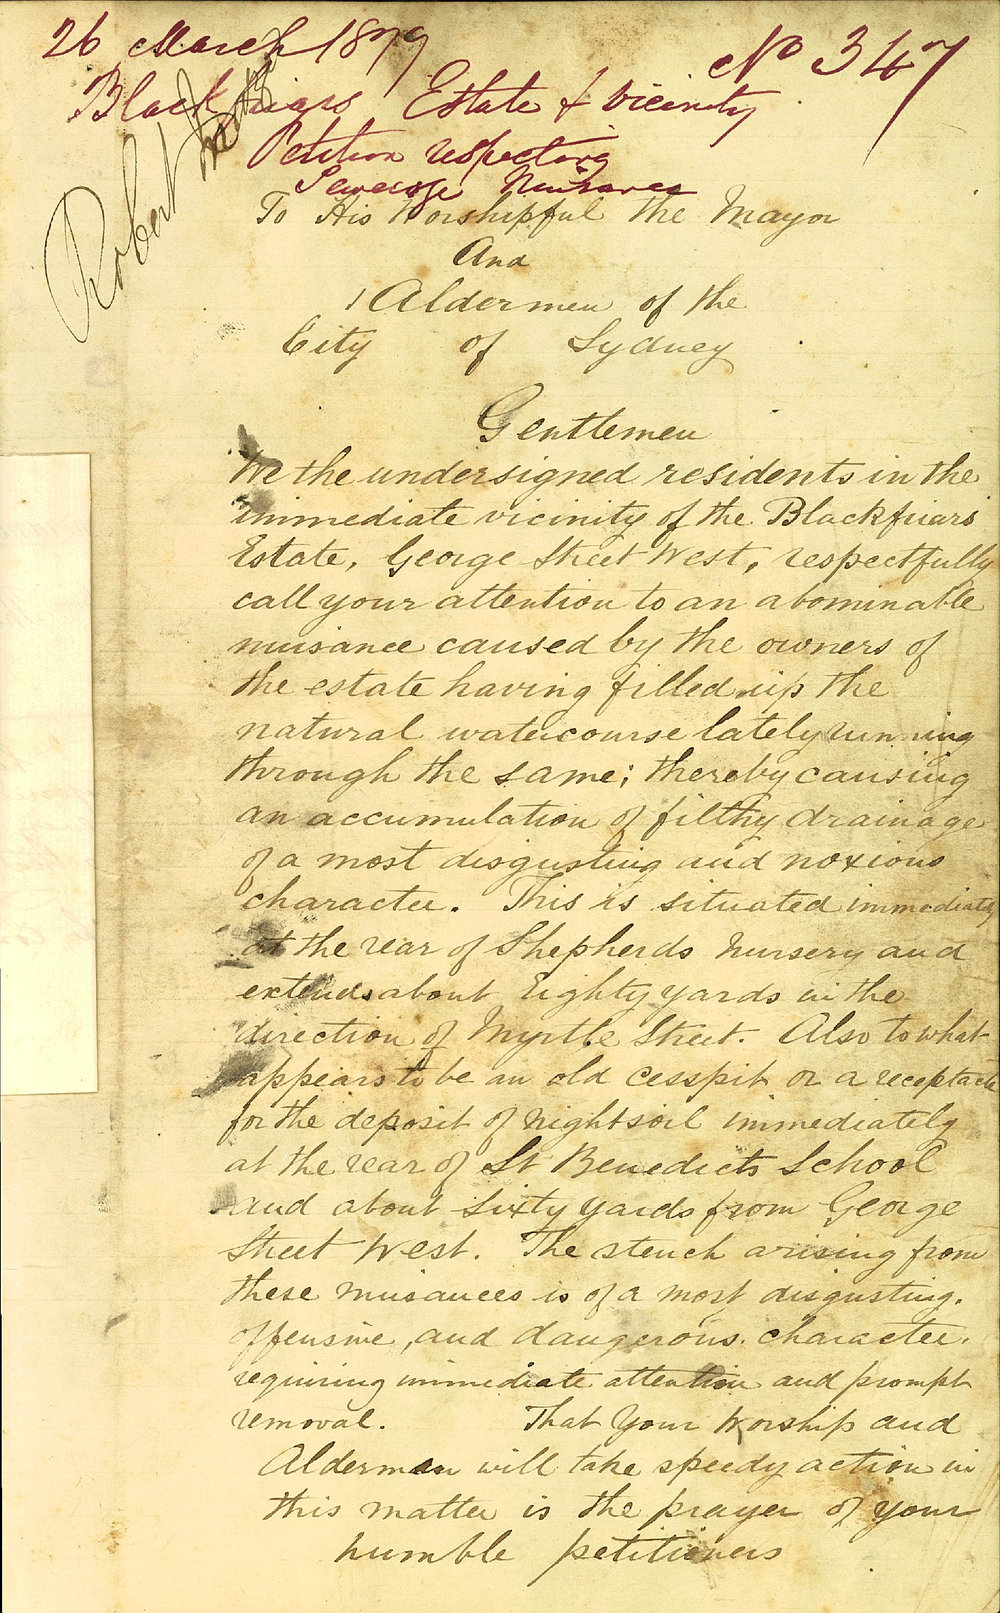 26 March 1879
No 347
Blackfriars Estate & vicinity
Petition respecting
Sewerage Nuisance
Robert
To His Worshipful the Mayor
And
Aldermen of the
City of Sydney
Gentlemen
We the undersigned residents in the
immediate vicinity of the Blackfriars
Estate, George Street West, respectfully
call your attention to an abominable
nuisance caused by the owners of
the estate having filled up the
natural watercourse lately running
through the same; thereby causing
an accumulation of filthy drainage
of a most disgusting and noxious
character. This is situated immediately
at the rear of Shepherds Nursery and
extends about Eighty yards in the
direction of Myrtle Street. Also to what
appears to be an old cesspit or a receptacle
for the deposit of nightsoil immediately
at the rear of St Benedicts School
and about sixty yards from George
Street West. The stench arising from
these nuisances is of a most disgusting.
offensive, and dangerous. character.
requiring immediate attention and prompt
removal. That Your Worship and
Aldermen will take speedy action in
this matter is the prayer of your
humble petitioners